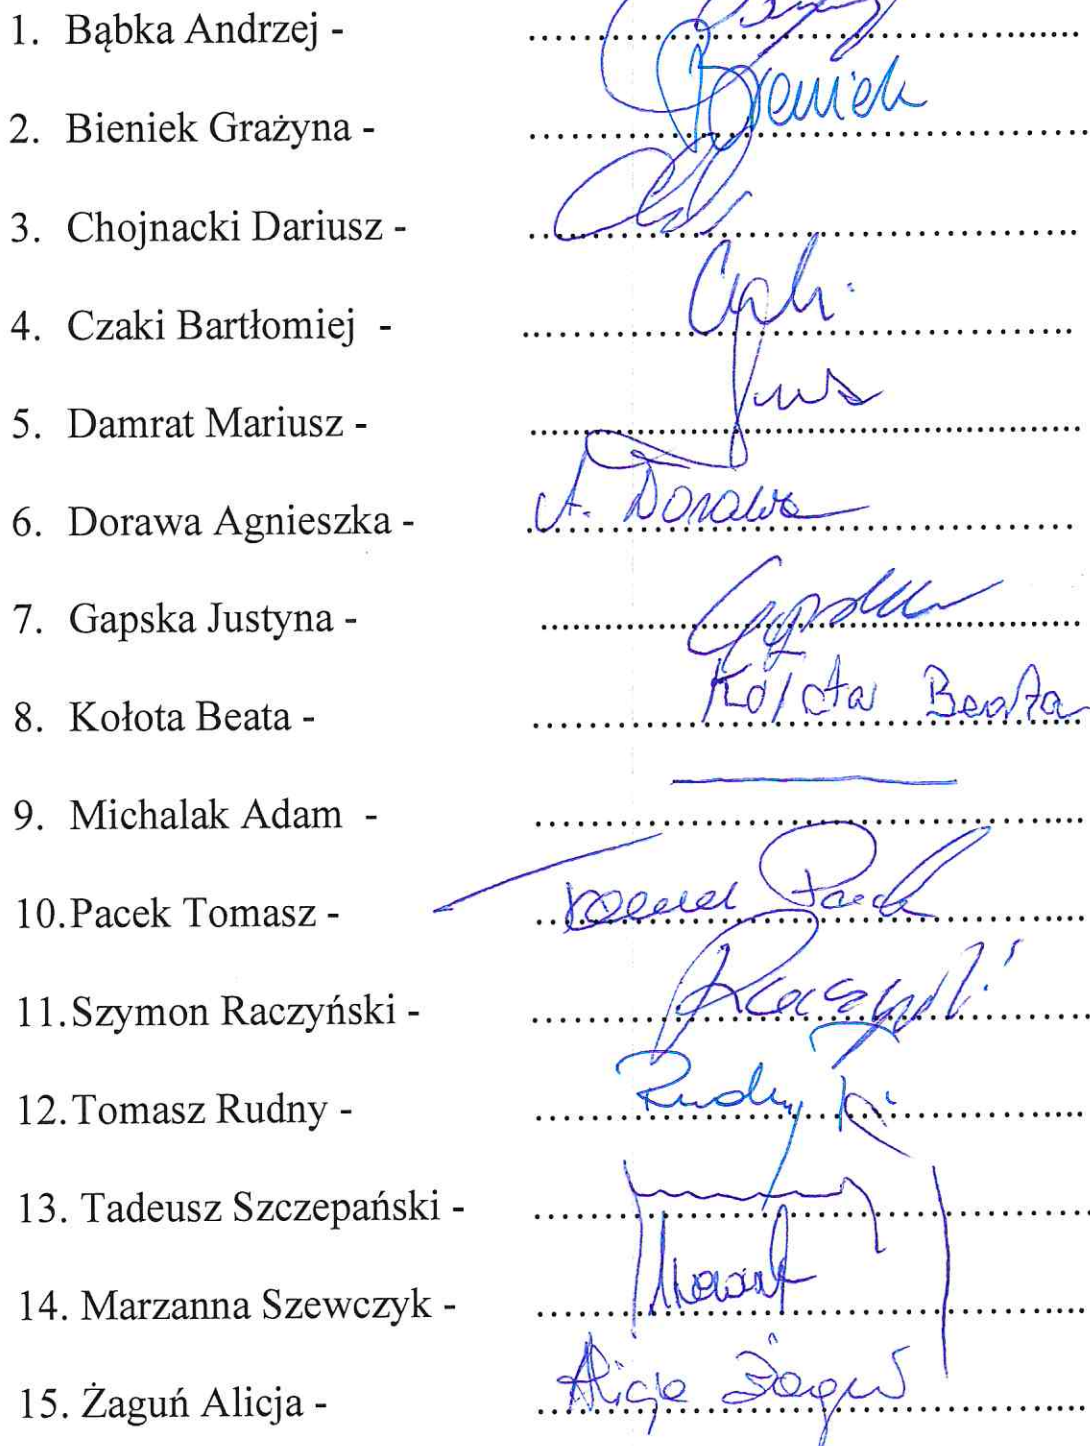 1. Bąbka Andrzej - ........................................
2. Bieniek Grażyna - ........................................ Bieniek
3. Chojnacki Dariusz - ........................................
4. Czaki Bartłomiej - ........................................
5. Damrat Mariusz - ........................................
6. Dorawa Agnieszka - ........................................ A. Dorawa
7. Gapska Justyna - ........................................ Gapska
8. Kołota Beata - ........................................ Kołota Beata
9. Michalak Adam - ........................................
10.Pacek Tomasz - ........................................ Tomasz Pacek
11.Szymon Raczyński - ........................................ Raczyński
12.Tomasz Rudny - ........................................ Rudny
13. Tadeusz Szczepański - ........................................
14. Marzanna Szewczyk - ........................................
15. Żaguń Alicja - ........................................ Alicja Żaguń